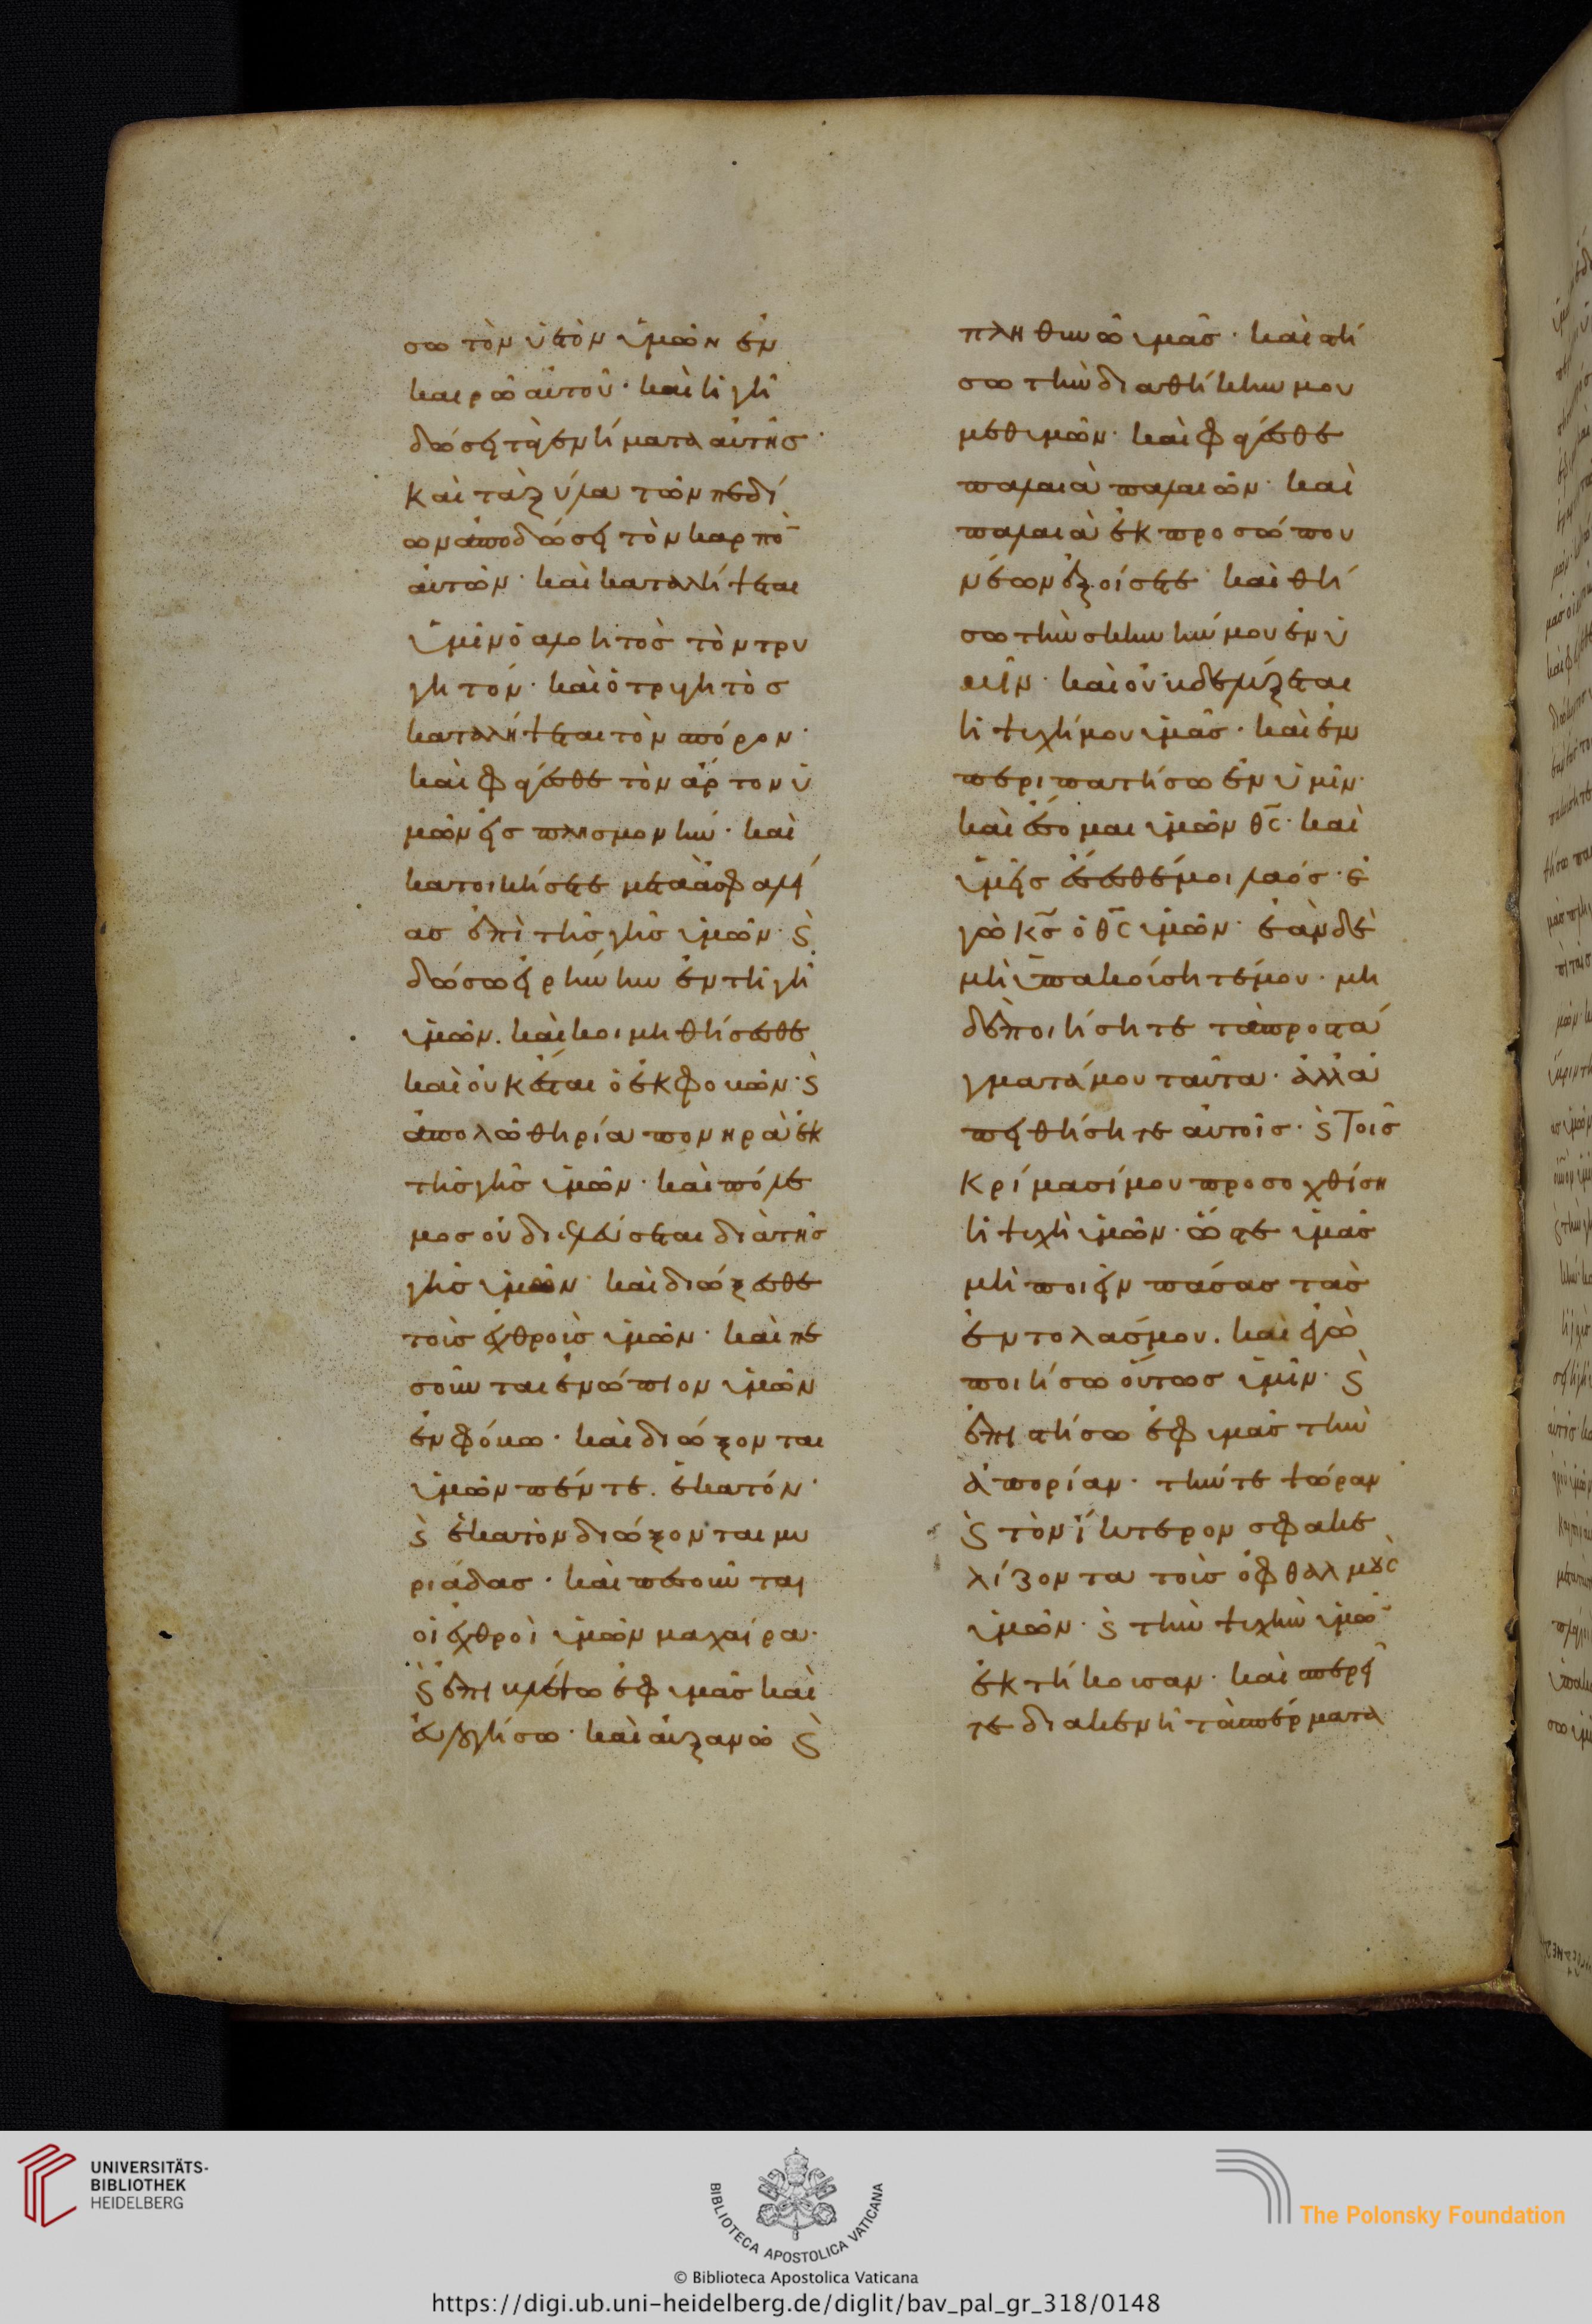 σω τὸν ὑετὸν ὑμῶν ἐν
καιρῶ αὐτοῦ· καὶ ἡ γῆ
δώσει τὰ γενήματα αὐτῆς·
καὶ τὰ ξύλα τῶν πεδί
ων ἀποδώσει τὸν καρπὸ¯
αὐτῶν· καὶ καταλήψεται
ὑμῖν ὁ ἀλοητὸς τὸν τρυ
γητόν· καὶ ὁ τρυγητὸς
καταλήψεται τὸν σπόρον·
καὶ φάγεσθε τὸν ἄρτον ὑ
μῶν εἰς πλησμονήν· καὶ
κατοικήσετε μετὰ ἀσφαλεί
ας ἐπὶ τῆς γῆς ὑμῶν· ϛ̀
δώσω εἰρήνην ἐν τῆ γῆ
ὑμῶν. καὶ κοιμηθήσεσθε
καὶ οὐκ ἔσται ὁ ἐκφοβῶν· ϛ̀
ἀπολῶ θηρία πονηρὰ ἐκ
τῆς γῆς ὑμῶν· καὶ πόλε
μος οὐ διελεύσεται διὰ τῆς
γῆς ὑμῶν· καὶ διώξεσθε
τοὺς ἐχθροὺς ὑμῶν· καὶ πε
σοῦνται ἐνώπιον ὑμῶν
ἐν φόβω· καὶ διώξονται
ὑμῶν πέντε. ἑκατόν·
ϛ̀ ἑκατὸν διώξονται μυ
ριάδας· καὶ πεσοῦνται
οἱ ἐχθροὶ ὑμῶν μαχαίρα·
ϛ̀ ἐπιβλέψω ἐφ ὑμᾶς καὶ
εὐλογήσω· καὶ αὐξανῶ ϛ̀
πληθυνῶ ὑμᾶς· καὶ στή
σω τὴν διαθήκην μου
μεθ ὑμῶν· καὶ φάγεσθε
παλαιὰ παλαιῶν· καὶ
παλαιὰ ἐκ προσώπου
νέων ἐξοίσετε· καὶ θή
σω τὴν σκηνήν μου ἐν ὑ
μῖν· καὶ οὐ βδελύξεται
ἡ ψυχή μου ὑμᾶς· καὶ ἐμ
περιπατήσω ἐν ὑμῖν·
καὶ ἔσομαι ὑμῶν θ̅ς̅· καὶ
ὑμεῖς ἔσεσθέ μοι λαός· ἐ
γὼ κ̅ς̅ ὁ θ̅ς̅ ὑμῶν· ἐὰν δὲ
μὴ ὑπακούσητέ μου· μη
δὲ ποιήσητε τὰ προστά
γματά μου ταῦτα· ἀλλὰ ἀ
πειθήσητε αὐτοῖς· ϛ̀ τοῖς
κρίμασί μου προσοχθίση
ἡ ψυχὴ ὑμῶν· ὥστε ὑμᾶς
μὴ ποιεῖν πάσας τὰς
ἐντολάς μου. καὶ ἐγὼ
ποιήσω οὕτως ὑμῖν· ϛ̀
ἐπιστήσω ἐφ ὑμᾶς τὴν
ἀπορίαν· τήν τε ψώραν
ϛ̀ τὸν ἴκτερον σφακε
λίζοντα τοὺς ὀφθαλμοὺς
ὑμῶν· ϛ̀ τὴν ψυχὴν ὑμῶ¯
ἐκτήκουσαν· καὶ σπερεῖ
τε διακενῆ τὰ σπέρματα
UNIVERSITÄTS-
BIBLIOTHEK
HEIDELBERG
BIBLIOTECA APOSTOLICA VATICANA
The Polonsky Foundation
© Biblioteca Apostolica Vaticana
https://digi.ub.uni-heidelberg.de/diglit/bav_pal_gr_318/0148